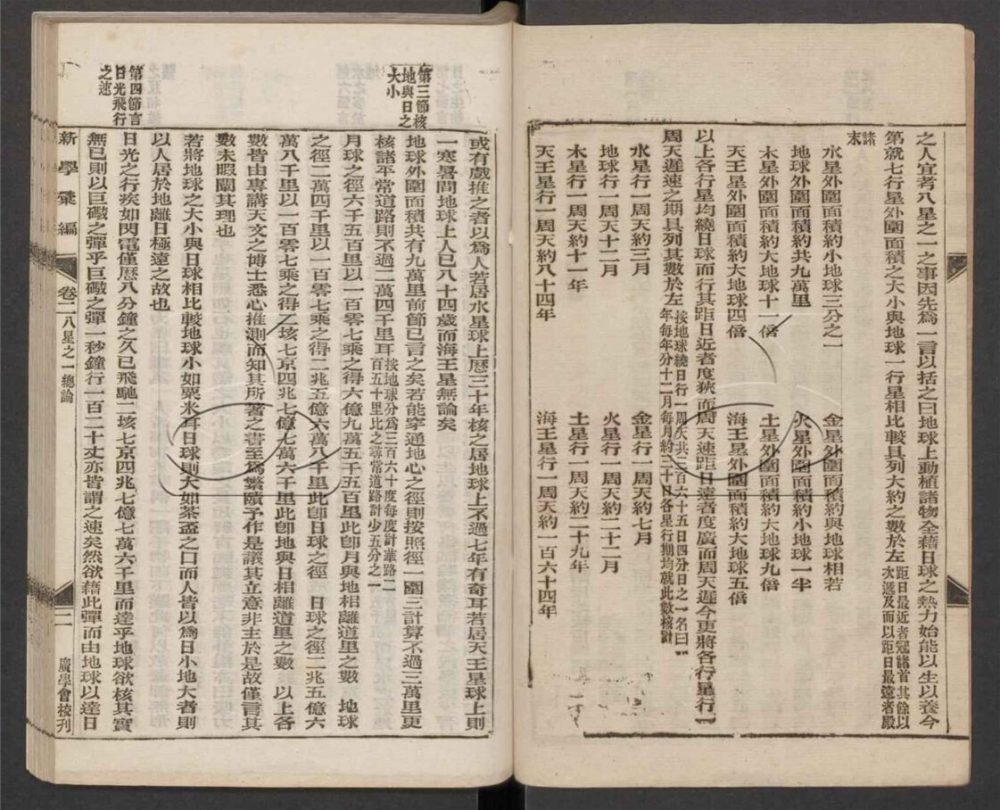 之人宜者八星之一之事因先爲一言以括之曰地球上動植諸物全藉日球之熱力始能以生以養今
第就七行星外圍面積之大小與地球一行星相比較具列大約之數於左距日最近者冠諸首其餘以次遞及而以距日最遠者殿
諸末
水星外圍面積約小地球三分之一 金星外圍面積約與地球相若
地球外圍面積約共九萬里 火星外圍面積約小地球一半
木星外圍面積約大地球十一倍 土星外圍面積約大地球九倍
天王星外圍面積約大地球四倍 海王星外圍面積約大地球五倍
以上各行星均繞日球而行其距日近者度狹而周天速距日遠者度廣而周天遲今更將各行星行一
周天遲速之期具列其數於左按地球繞日行一周天共三百六十五日四分日之一名曰一年每年分十二月每月約三十日各星行期均就此數核計
水星行一周天約三月 金星行一周天約七月
地球行一周天十二月 火星行一周天約二十二月
木星行一周天約十一年 土星行一周天約二十九年
天王星行一周天約八十四年 海王星行一周天約一百六十四年
或有戲推之者以爲人若居水星球上歷三十年核之居地球上不過七年有奇耳若居天王星球上則
一寒暑間地球上人已八十四歲而海王星無論矣
第三節核地與日之大小
地球外圍面積共有九萬里前節已言之矣若能穿通地心之徑則按照徑一圍三計算不過三萬里更
核諸平常道路則不過二萬四千里耳按地球分爲三百六十度每度計華路二百五十里比之尋常道路計少五分之一
月球之徑六千五百里以一百零七乘之得六億九萬五千五百里此卽月與地相離道里之數 地球
之徑二萬四千里以一百零七乘之得二兆五億六萬八千里此卽日球之徑 日球之徑二兆五億六
萬八千里以一百零七乘之得二垓七京四兆七億七萬六千里此卽地與日相離道里之數 以上各
數皆由專講天文之博士悉心推測而知其所著之書至爲繁賾予作是議其立意非主於是故僅言其
數未暇闡其理也
若將地球之大小與日球相比較地球小如粟米耳日球則大如茶盃之口而人皆以爲日小地大者則
以人居於地離日極遠之故也
第四節言日光飛行之速
日光之行疾如閃電僅歷八分鐘之久已飛馳二垓七京四兆七億七萬六千里而達乎地球欲核其實
無已則以巨礮之彈乎巨礮之彈一秒鐘行一百二十丈亦皆謂之速矣然欲藉此彈而由地球以達日
新學彙編
卷二八星之一總論
二
廣學會校刊